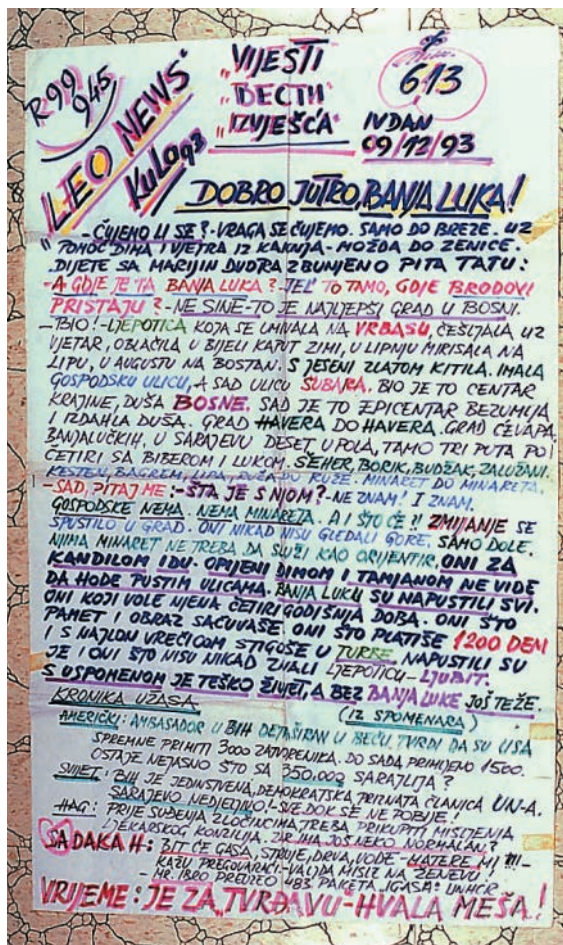 R99
945
„LEO NEWS“
Kula 93
„VIJESTI
„ВЕСТИ
„IZVJEŠĆA“
613
IV DAN
09/12/93
DOBRO JUTRO, BANJA LUKA!
- ČUJEMO LI SE? - VRAGA SE ČUJEMO. SAMO DO BREZE. UZ
POMOĆ DIMA I VJETRA IZ KAKNJA - MOŽDA DO ZENICE.
DIJETE SA MARIJIN DVORA ZBUNJENO PITA TATU:
- A GDJE JE TA BANJA LUKA? - JEL' TO TAMO, GDJE BRODOVI
PRISTAJU? - NE SINE - TO JE NAJLJEPŠI GRAD U BOSNI.
- BIO! - LJEPOTICA KOJA SE UMIVALA NA VRBASU, ČEŠLJALA UZ
VJETAR, OBLAČILA U BIJELI KAPUT ZIMI, U LIPNJU MIRISALA NA
LIPU, U AUGUSTU NA BOSTAN. S JESENI ZLATOM KITILA. IMALA
GOSPODSKU ULICU, A SAD ULICU ŠUBARA. BIO JE TO CENTAR
KRAJINE, DUŠA BOSNE. SAD JE TO EPICENTAR BEZUMLJA
I IZDAHLA DUŠA. GRAD HAVERA DO HAVERA. GRAD ĆEVAPA.
BANJALUČKIH, U SARAJEVU DESET U POLA, TAMO TRI PUTA PO
ČETIRI SA BIBEROM I LUKOM. ŠEHER, BORIK, BUDŽAK, ZALUŽANI.
KESTEN, BAGREM, LIPA, RUŽA DO RUŽE. MINARET DO MINARETA.
- SAD, PITAJ ME: - ŠTA JE S NJOM? - NE ZNAM! I ZNAM.
GOSPODSKE NEMA, NEMA MINARETA. A I ŠTO ĆE?! ZMIJANJE SE
SPUSTILO U GRAD. ONI NIKAD NISU GLEDALI GORE. SAMO DOLE.
NJIMA MINARET NE TREBA DA SLUŽI KAO ORIJENTIR. ONI ZA
KANDILOM IDU. OPIJENI DIMOM I TAMJANOM NE VIDE
DA HODE PUSTIM ULICAMA. BANJA LUKU SU NAPUSTILI SVI.
ONI KOJI VOLE NJENA ČETIRI GODIŠNJA DOBA. ONI ŠTO
PAMET I OBRAZ SAČUVAŠE. ONI ŠTO PLATIŠE 1200 DEM
I S NAJLON VREĆICOM STIGOŠE U TURBE. NAPUSTILI SU
JE I ONI ŠTO NISU NIKAD ZNALI LJEPOTICU - LJUBIT.
S USPOMENOM JE TEŠKO ŽIVJET, A BEZ BANJA LUKE JOŠ TEŽE.
(IZ SPOMENARA)
KRONIKA UŽASA
AMERIČKI: AMBASADOR U BIH DETAŠIRAN U BEČU, TVRDI DA SU USA
SPREMNE PRIMITI 3000 ZATVORENIKA. DO SADA PRIMIJENO 1500.
OSTAJE NEJASNO ŠTO SA 350.000 SARAJLIJA?
SVIJET: BIH JE JEDINSTVENA, DEMOKRATSKA PRIZNATA ČLANICA UN-A.
SARAJEVO NEDJELJIVO! - SVE DOK SE NE POBIJE!
HAG: PRIJE SUĐENJA ZLOČINCIMA TREBA PRIKUPITI MIŠLJENJA
LJEKARSKOG KONZILIJA. ZAR IMA JOŠ NEKO NORMALAN?
SADAKA H: BIT ĆE GASA, STRUJE, DRVA, VODE - MATERE MI!!! -
KAŽU PREGOVARAČI - VALJDA MISLE NA ŽENEVU!
- MR. IBRO PREUZEO 483 PAKETA „IGASA“ UNHCR
VRIJEME: JE ZA „TVRĐAVU“ - HVALA MEŠA!